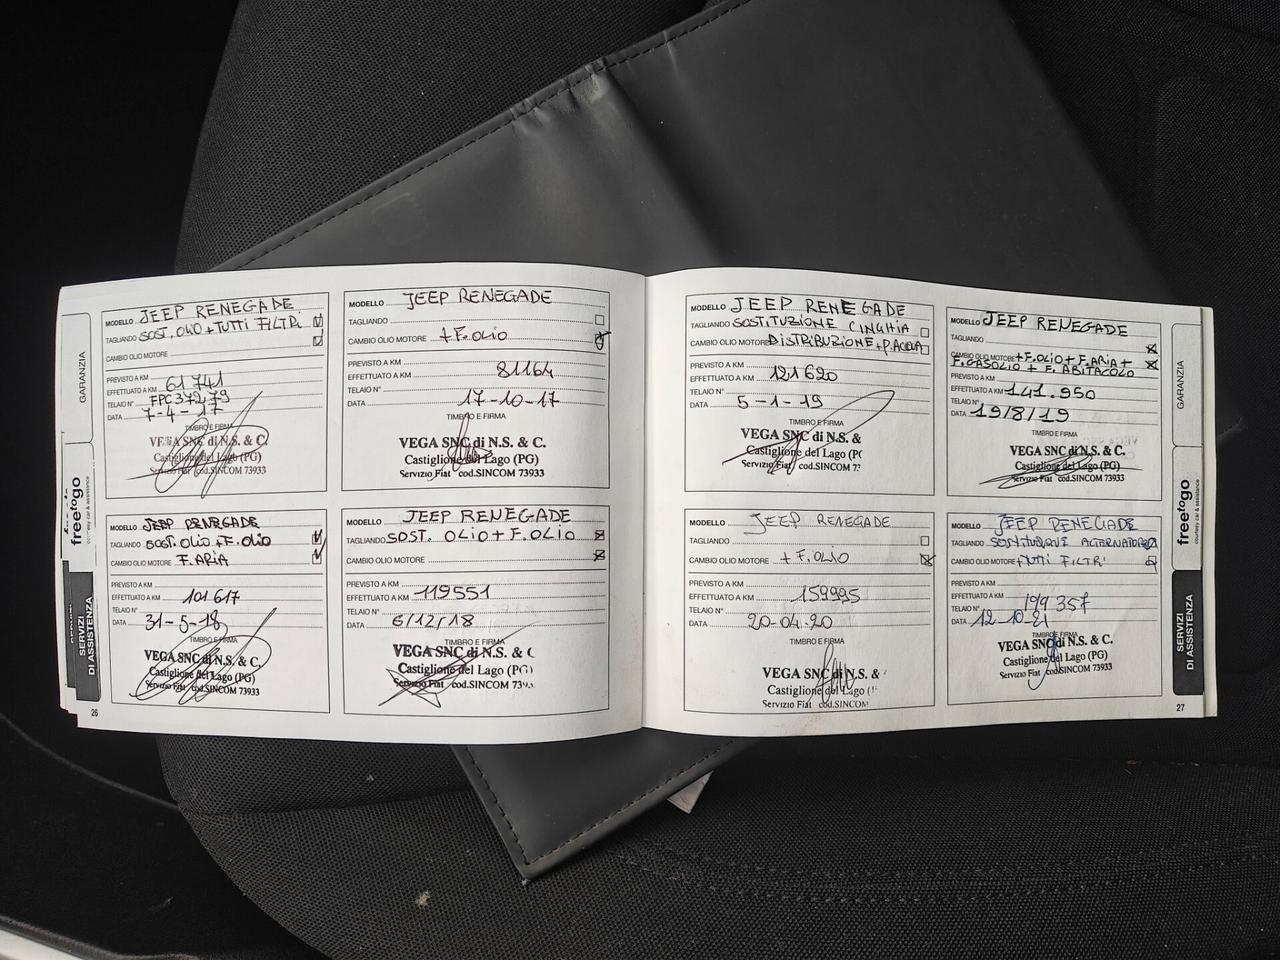 GARANZIA
freetogo
courtesy car & assistance
SERVIZI
DI ASSISTENZA
26
MODELLO JEEP RENEGADE
TAGLIANDO SOST. OLIO + TUTTI FILTRI
CAMBIO OLIO MOTORE
PREVISTO A KM
EFFETTUATO A KM 61741
TELAIO N° FPC37279
DATA 7-4-17
TIMBRO E FIRMA
VEGA SNC di N.S. & C.
Castiglione del Lago (PG)
Servizio Fiat cod.SINCOM 73933
MODELLO JEEP RENEGADE
TAGLIANDO
CAMBIO OLIO MOTORE + F. OLIO
PREVISTO A KM
EFFETTUATO A KM 81164
TELAIO N°
DATA 17-10-17
TIMBRO E FIRMA
VEGA SNC di N.S. & C.
Castiglione del Lago (PG)
Servizio Fiat cod.SINCOM 73933
MODELLO JEEP RENEGADE
TAGLIANDO SOST. OLIO + F. OLIO
CAMBIO OLIO MOTORE F. ARIA
PREVISTO A KM
EFFETTUATO A KM 101617
TELAIO N°
DATA 31-5-18
TIMBRO E FIRMA
VEGA SNC di N.S. & C.
Castiglione del Lago (PG)
Servizio Fiat cod.SINCOM 73933
MODELLO JEEP RENEGADE
TAGLIANDO SOST. OLIO + F. OLIO
CAMBIO OLIO MOTORE
PREVISTO A KM
EFFETTUATO A KM 119551
TELAIO N°
DATA 6/12/18
TIMBRO E FIRMA
VEGA SNC di N.S. & C
Castiglione del Lago (PG)
Servizio Fiat cod.SINCOM
MODELLO JEEP RENEGADE
TAGLIANDO SOSTITUZIONE CINGHIA
CAMBIO OLIO MOTORE DISTRIBUZIONE + P. ACQUA
PREVISTO A KM
EFFETTUATO A KM 121620
TELAIO N°
DATA 5-1-19
TIMBRO E FIRMA
VEGA SNC di N.S. &
Castiglione del Lago (PG
Servizio Fiat cod.SINCOM
MODELLO JEEP RENEGADE
TAGLIANDO
CAMBIO OLIO MOTORE + F. OLIO + F. ARIA +
F. GASOLIO + F. ABITACOLO
EFFETTUATO A KM 141.950
TELAIO N°
DATA 19/8/19
TIMBRO E FIRMA
VEGA SNC di N.S. & C.
Castiglione del Lago (PG)
Servizio Fiat cod.SINCOM 73933
MODELLO JEEP RENEGADE
TAGLIANDO
CAMBIO OLIO MOTORE + F. OLIO
PREVISTO A KM
EFFETTUATO A KM 159995
TELAIO N°
DATA 20-04-20
TIMBRO E FIRMA
VEGA SNC di N.S. &
Castiglione del Lago
Servizio Fiat cod.SINCOM
MODELLO JEEP RENEGADE
TAGLIANDO SOSTITUZIONE ALTERNATORE
CAMBIO OLIO MOTORE + TUTTI FILTRI
PREVISTO A KM
EFFETTUATO A KM 199357
TELAIO N°
DATA 12-10-21
TIMBRO E FIRMA
VEGA SNC di N.S. & C.
Castiglione del Lago (PG)
Servizio Fiat cod.SINCOM 73933
GARANZIA
freetogo
courtesy car & assistance
SERVIZI
DI ASSISTENZA
27